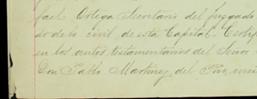 fael Ortega Secretario del Juzgado
do de lo civil de esta Capital. Certifi
en los autos testamentarios del Señor
Don Pablo Martinez del Rio,